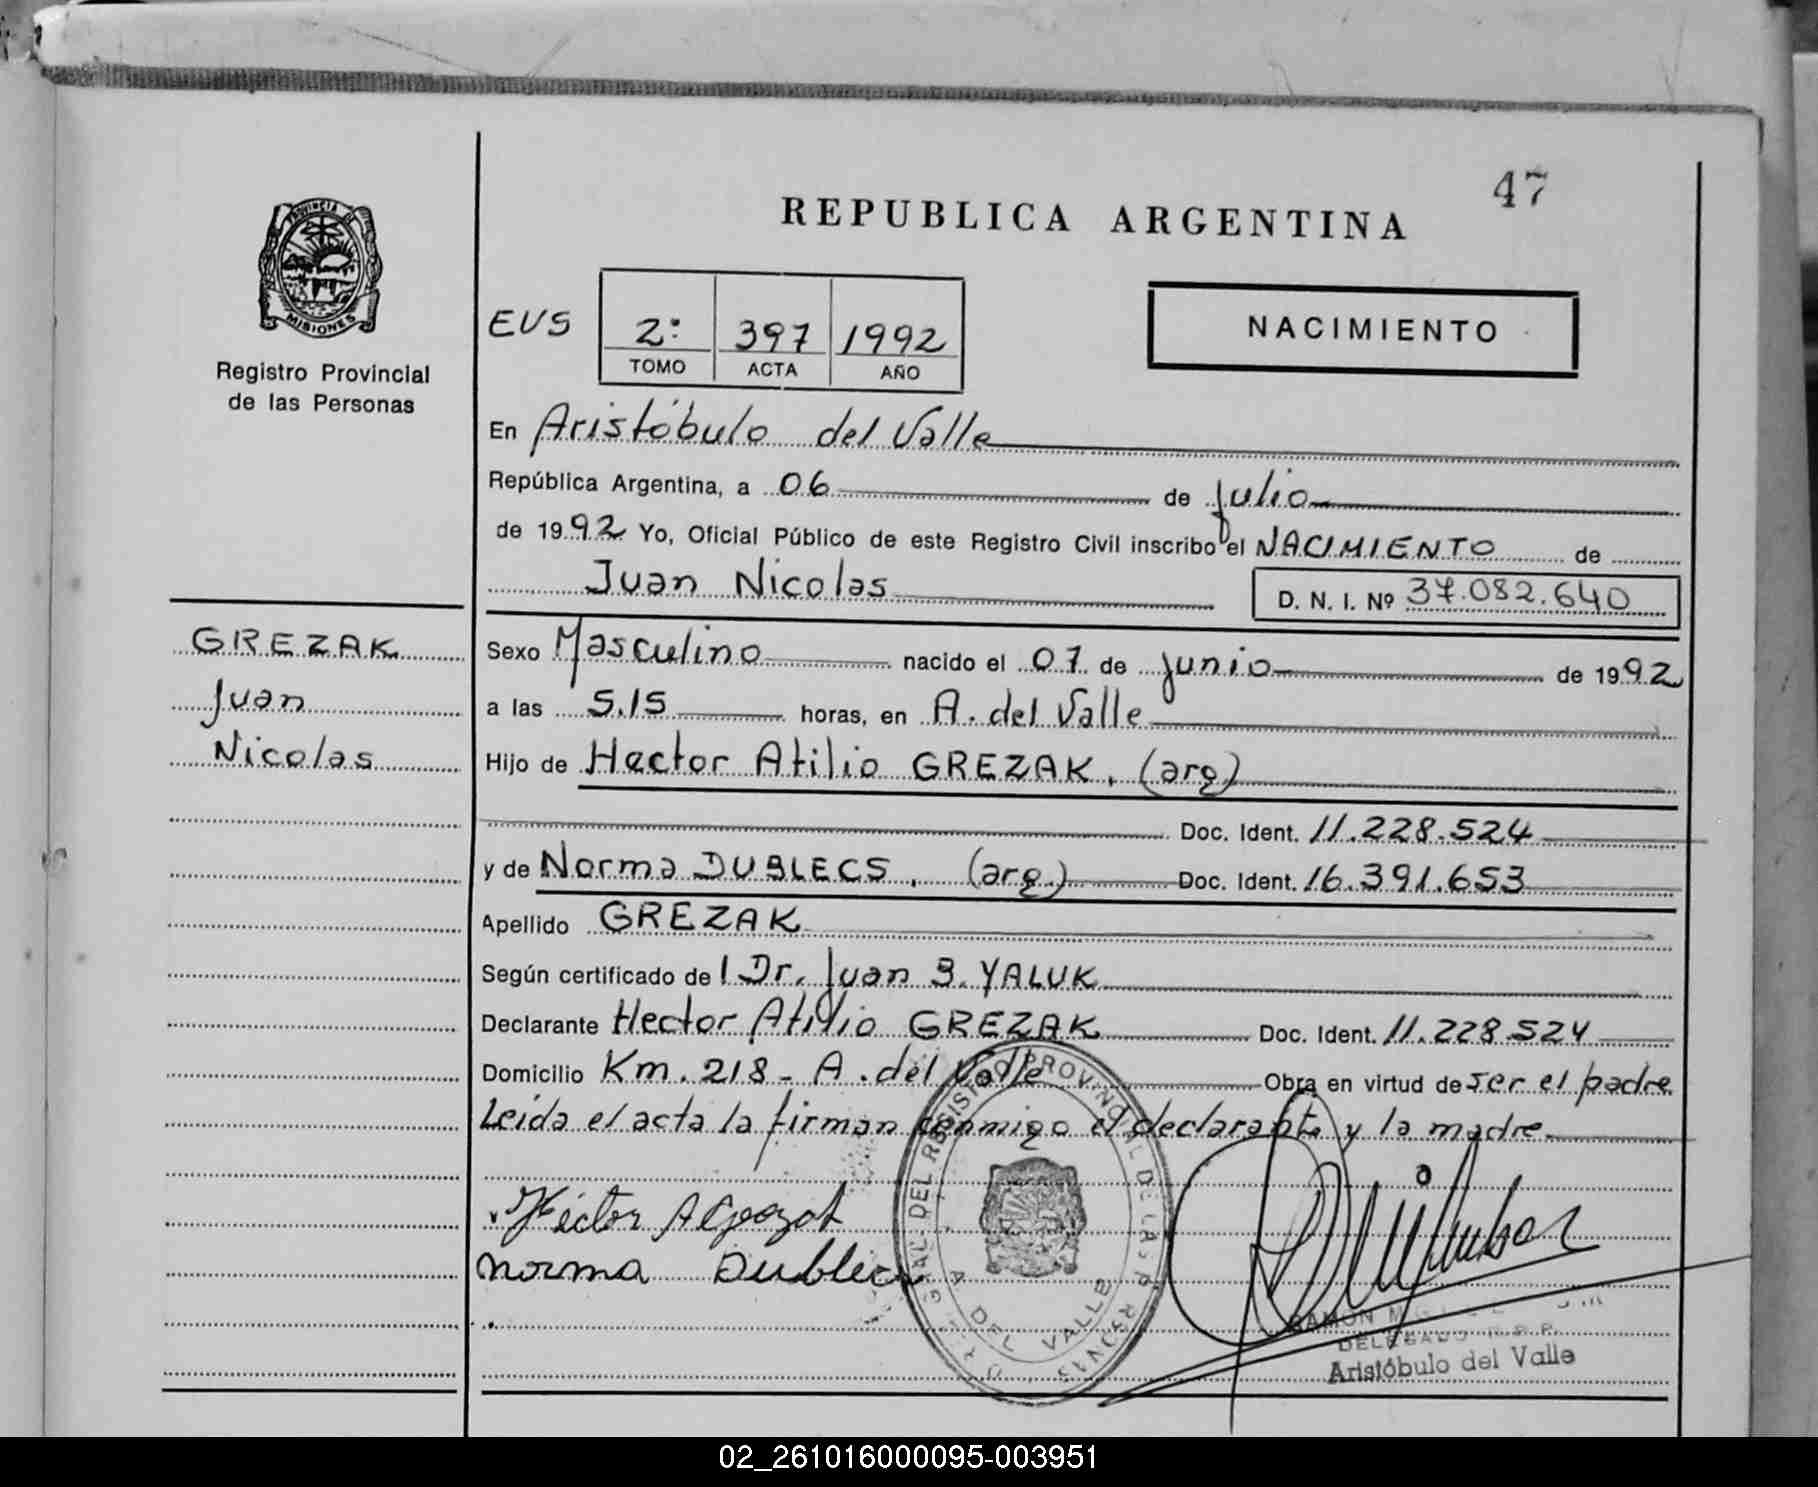 47
REPUBLICA ARGENTINA
PROVINCIA DE
MISIONES
Registro Provincial
de las Personas
EUS
2º 397 1992
TOMO ACTA AÑO
NACIMIENTO
En Aristóbulo del Valle
República Argentina, a 06 de Julio
de 1992 Yo, Oficial Público de este Registro Civil inscribo el NACIMIENTO de
Juan Nicolas D. N. I. Nº 37.082.640
GREZAK
Juan
Nicolas
Sexo Masculino nacido el 07 de junio de 1992
a las 5.15 horas, en A. del Valle
Hijo de Hector Atilio GREZAK. (arg)
Doc. Ident. 11.228.524
y de Norma DUBLECS. (arg.) Doc. Ident. 16.391.653
Apellido GREZAK
Según certificado de l Dr. Juan B. YALUK
Declarante Hector Atilio GREZAK Doc. Ident. 11.228.524
Domicilio Km. 218 - A. del Valle Obra en virtud de ser el padre
Leida el acta la firman conmigo el declarante y la madre
Héctor A
norma Dublecs
A DEL VALLE
RAMON
DELEGADO R.P.P.
Aristóbulo del Valle
02_261016000095-003951